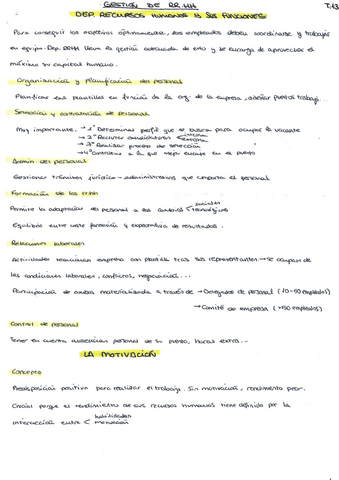 GESTIÓN DE RR.HH T.13
DEP. RECURSOS HUMANOS Y SUS FUNCIONES
Para conseguir los objetivos óptimamente, los empleados deben coordinarse y trabajar
en equipo. Dep. RRHH lleva la gestión adecuada de ello y se encarga de aprovechar el
máximo su capital humano.
Organización y planificación del personal
Planificar las plantillas en función de la org. de la empresa, diseñar puestos trabajo...
Selección y contratación de personal
Muy importante. → 1º Determinar perfil que se busca para ocupar la vacante
→ 2º Reclutar candidatos < interna externa
→ 3º Realizar proceso de selección
→ 4º Contratar a la que mejor encaje en el puesto
Admin del personal
Gestionar trámites jurídico - administrativos que comporta el personal
Formación de los rrhh
Permite la adaptación del personal a los cambios < sociales tecnológicos
Equilibrio entre coste formación y expectativa de resultados.
Relaciones laborales
Actividades relacionan empresa con plantilla tras sus representantes → se ocupan de
las condiciones laborales, conflictos, negociación...
Participación de ambos materializada a través de → Delegados de personal (10-50 empleados)
→ Comité de empresa (+50 empleados)
Control de personal
Tener en cuenta personal de su puesto, horas extra...
LA MOTIVACIÓN
Concepto
Predisposición positiva para realizar el trabajo. Sin motivación, rendimiento peor.
Crucial porque el rendimiento de sus recursos humanos viene definido por la
interacción entre < habilidades motivación